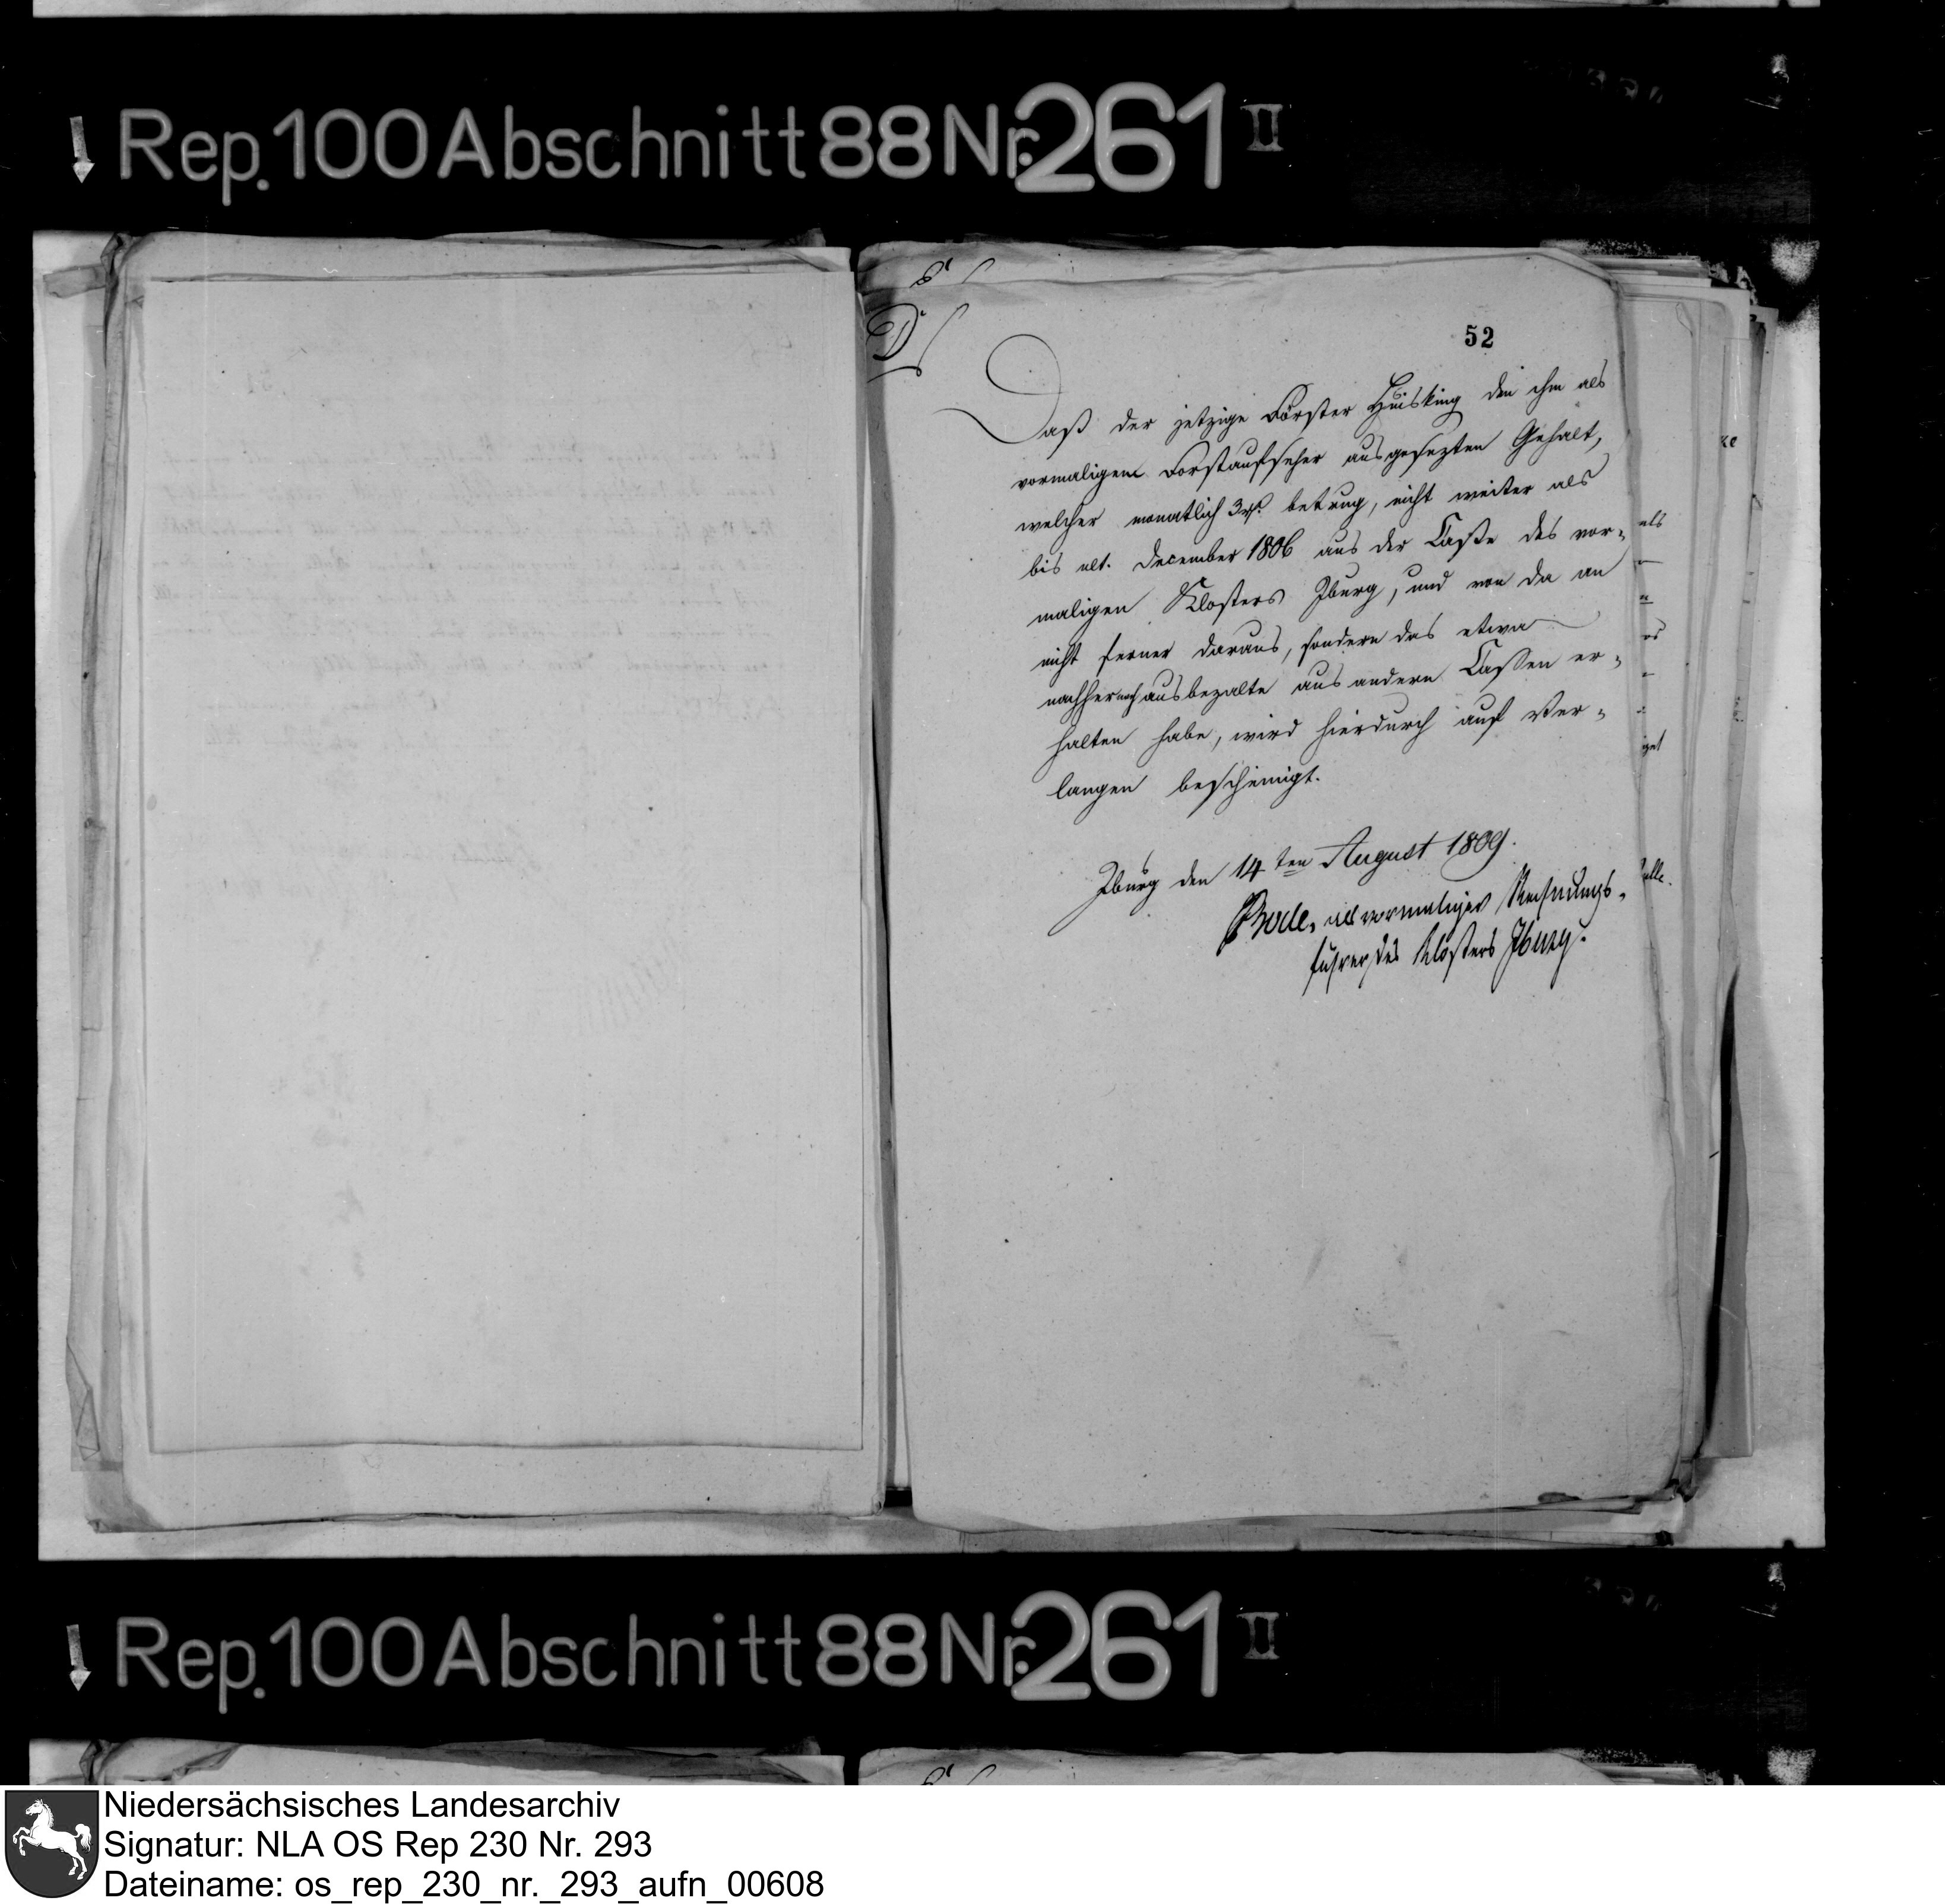 Rep. 100 Abschnitt 88 Nr. 261 II
52
D
Daß der jetzige Förster Huisking den ihm als
vormaligem Forstaufseher ausgesezten Gehalt,
welcher monatlich 3 rthl. betrug, nicht weiter als
bis ult. December 1806 aus der Casse des vor-
maligen Klosters Iburg, und von da an
nicht ferner daraus, sondern das etwa
nachher noch ausbezalte aus andern Cassen er-
halten habe, wird hierdurch auf Ver-
langen bescheinigt.
Iburg den 14ten August 1809.
Bode, als vormaliger Rechnungs-
führer des Klosters Iburg.
als
Rep. 100 Abschnitt 88 Nr. 261 II
Niedersächsisches Landesarchiv
Signatur: NLA OS Rep 230 Nr. 293
Dateiname: os_rep_230_nr._293_aufn_00608